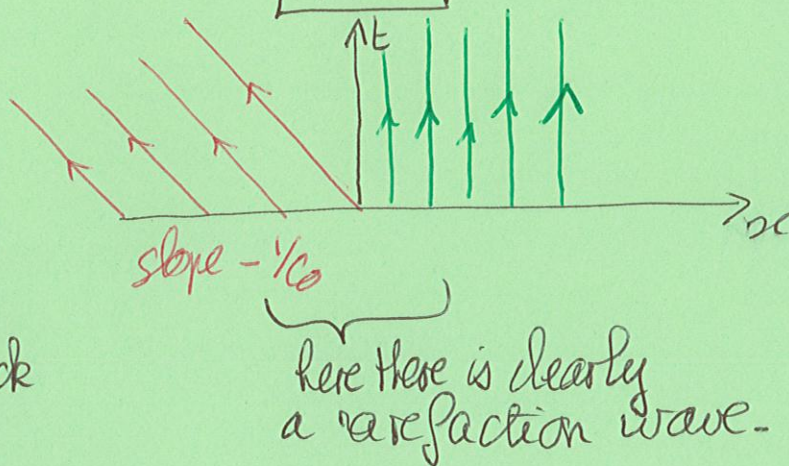 t
x
slope - 1/c₀
ck
here there is clearly
a rarefaction wave.